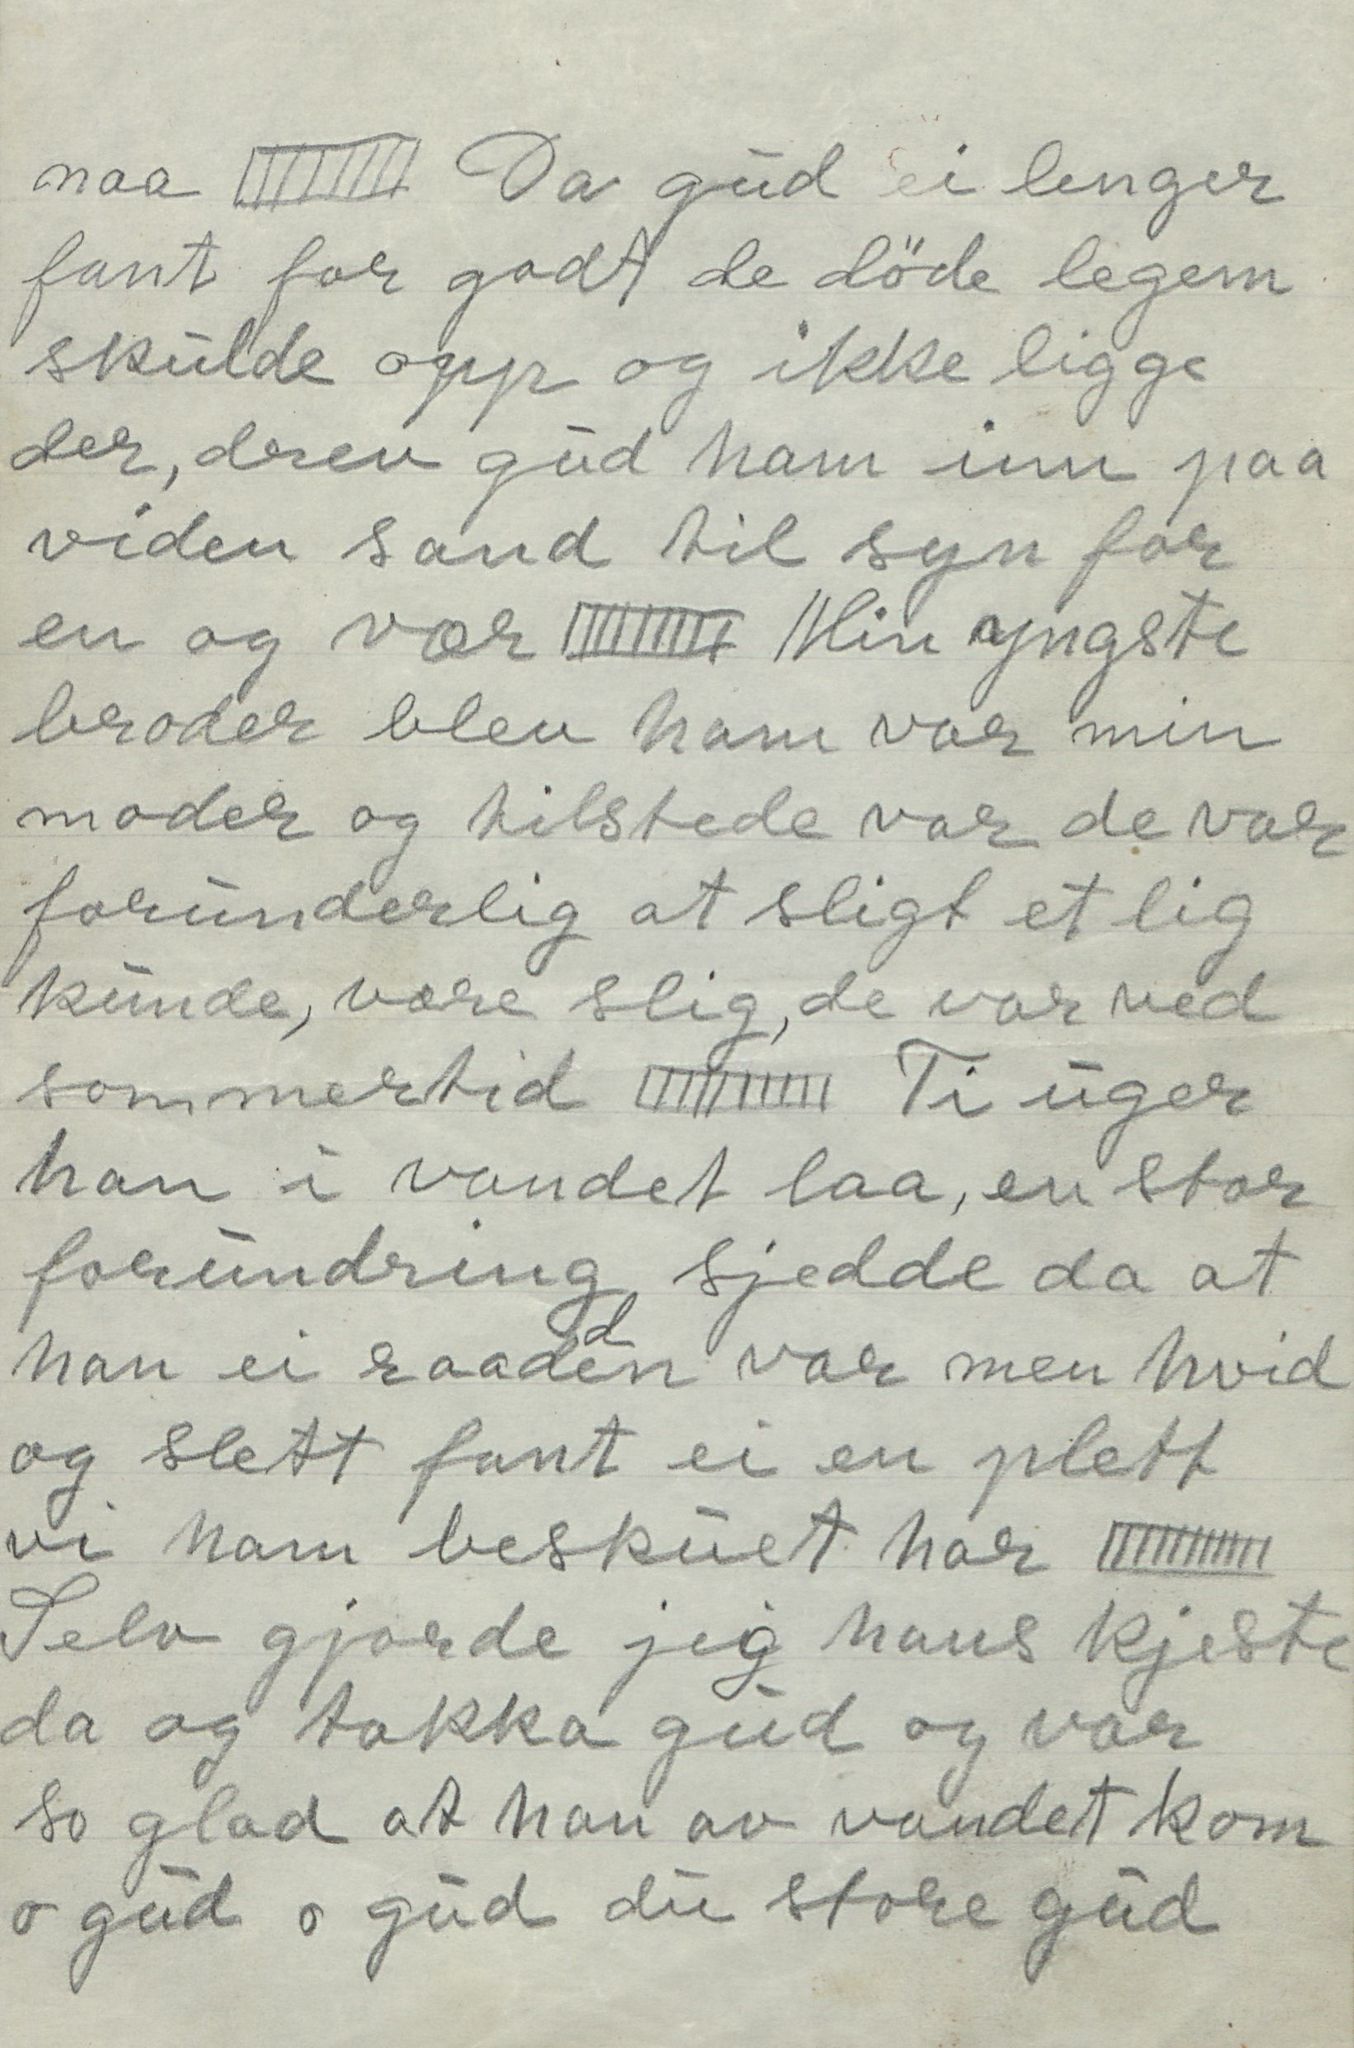 naa Da gud ei lenger
fant for godt de döde legem
skulde opp og ikke ligge
der, drev gud ham inn paa
viden sand til syn for
en og vær Min yngste
broder blev ham var min
moder og tilstede var de var
forunderlig at sligt et lig
kunde, være slig, de var ved
sommertid Ti uger
han i vandet laa, en stor
forundring sjedde da at
han ei raadden var men hvid
og slett fant ei en plett
vi ham beskuet har
Selv gjorde jeg hans kjeste
da og takka gud og var
so glad at han av vandet kom
o gud o gud du store gud